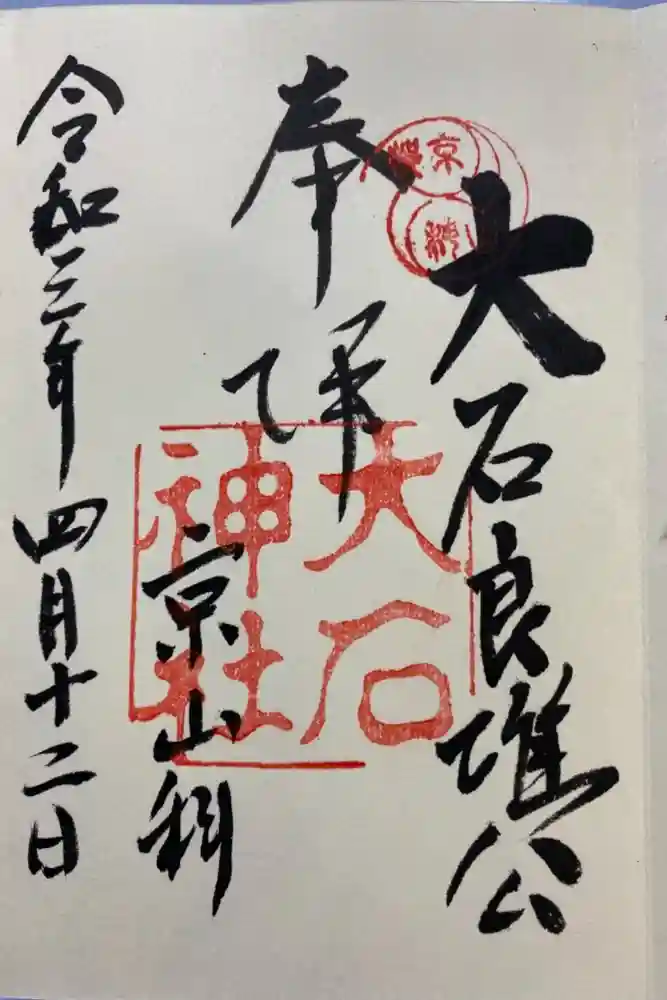 大石良雄公
奉拝
京山科
令和三年四月十二日
大石
神社